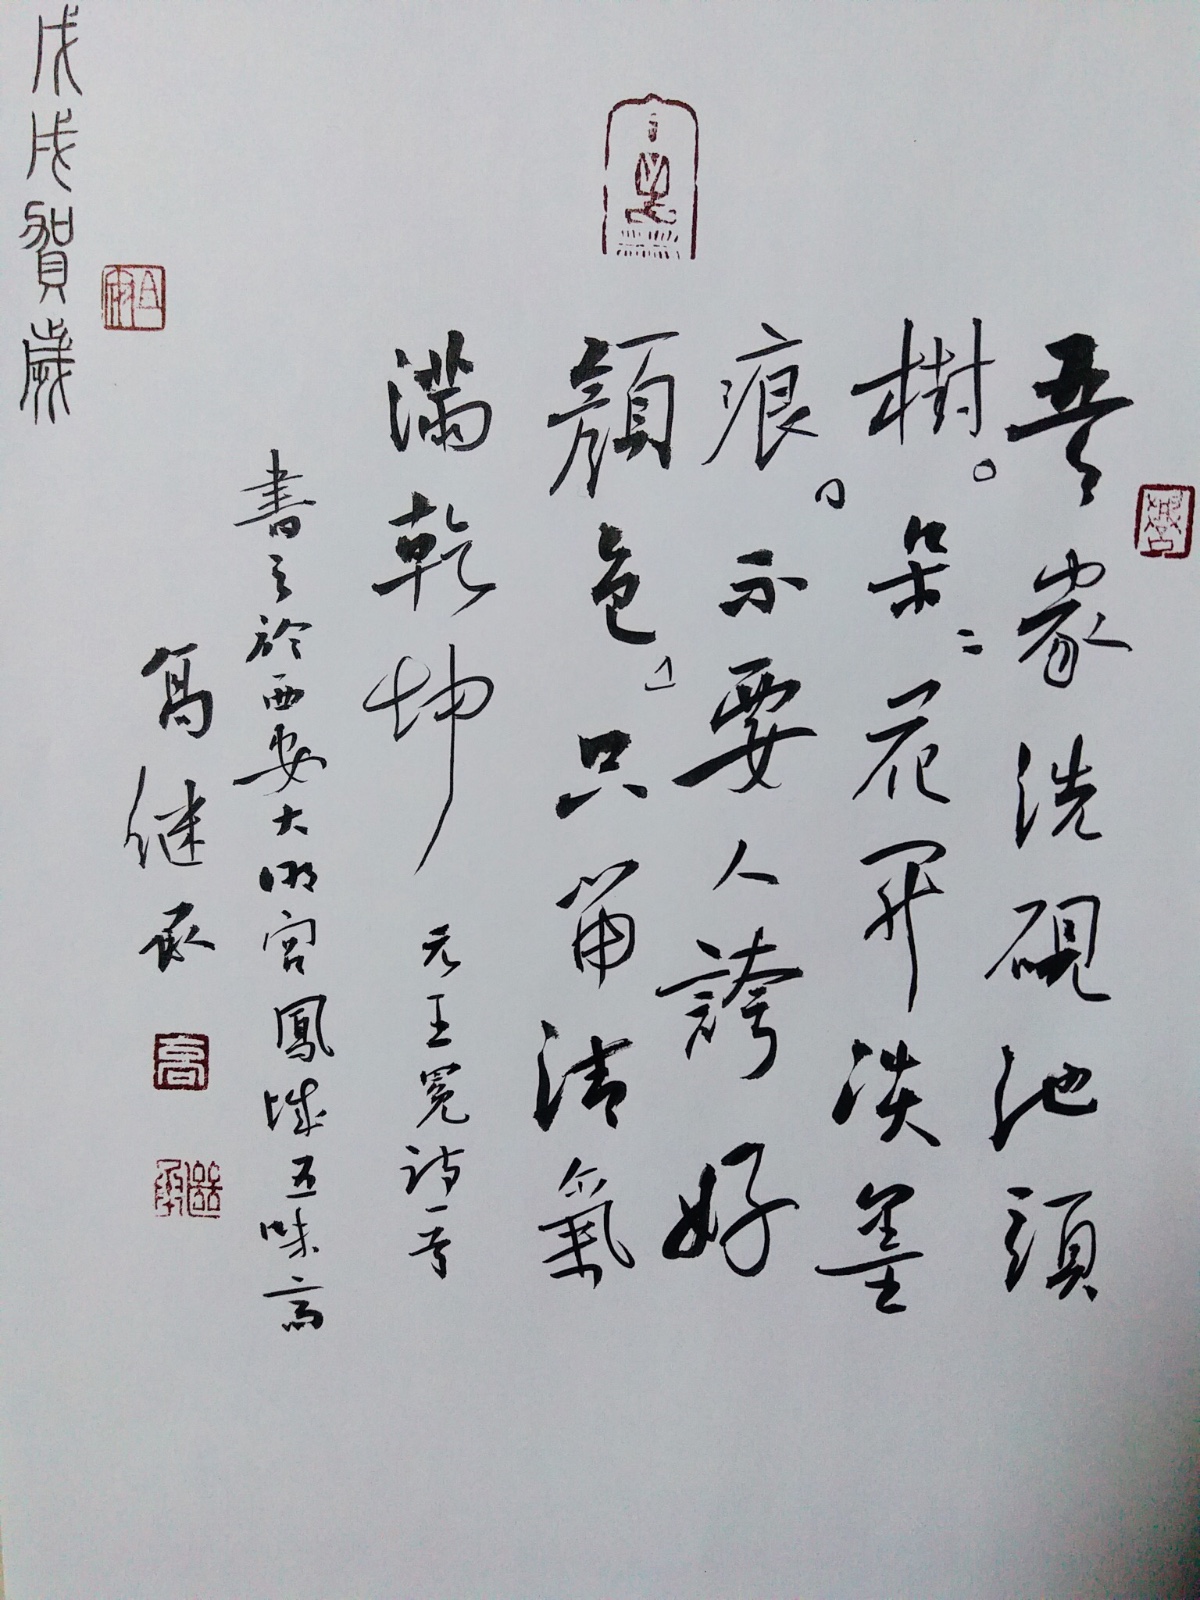 吾家洗硯池頭
樹。朵〻花開淡墨
痕。不要人誇好
顏色」只留清氣
滿乾坤 元王冕詩一首
書之於西安大明宮鳳城五味齋
高继承
高
继承
戊戌賀歲